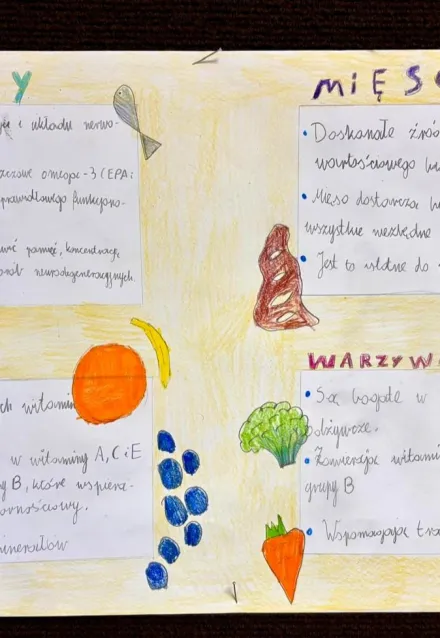 Y
i układu nerwo-
omega-3 (EPA i
prawidłowego funkcjono-
pamięć, koncentrację
neurodegeneracyjnych.
MIĘS
• Doskonałe źró
wartościowego
• Mięso dostarcza
wszystkie niezbędne
• Jest to istotne do
ch witamin
w witaminy A, C i E
y B, które wspiera-
ornościowy.
minerałów
WARZYW
• Są bogate w
odżywcze.
• Zawierają witami
grupy B
• Wspomagają tra